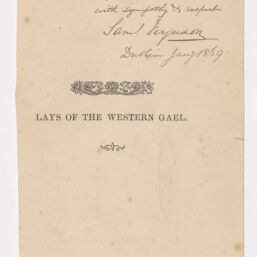 with sympathy & respect
Saml. Ferguson
Dublin Jany 1869.
LAYS OF THE WESTERN GAEL.